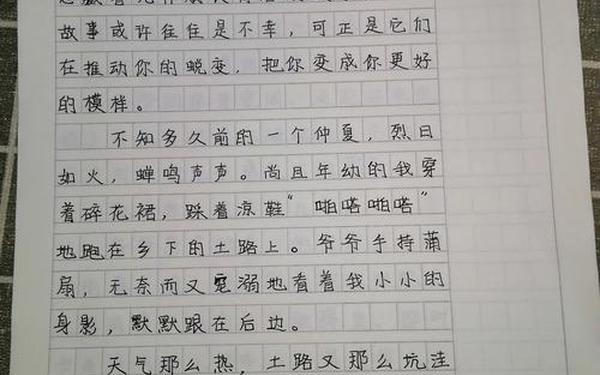 故事或许往往是不幸，可正是它们
在推动你的蜕变，把你变成你更好
的模样。
不知多久前的一个仲夏，烈日
如火，蝉鸣声声。尚且年幼的我穿
着碎花裙，踩着凉鞋“啪嗒啪嗒”
地跑在乡下的土路上。爷爷手持蒲
扇，无奈而又宠溺地看着我小小的
身影，默默跟在后边。
天气那么热，土路又那么坑洼